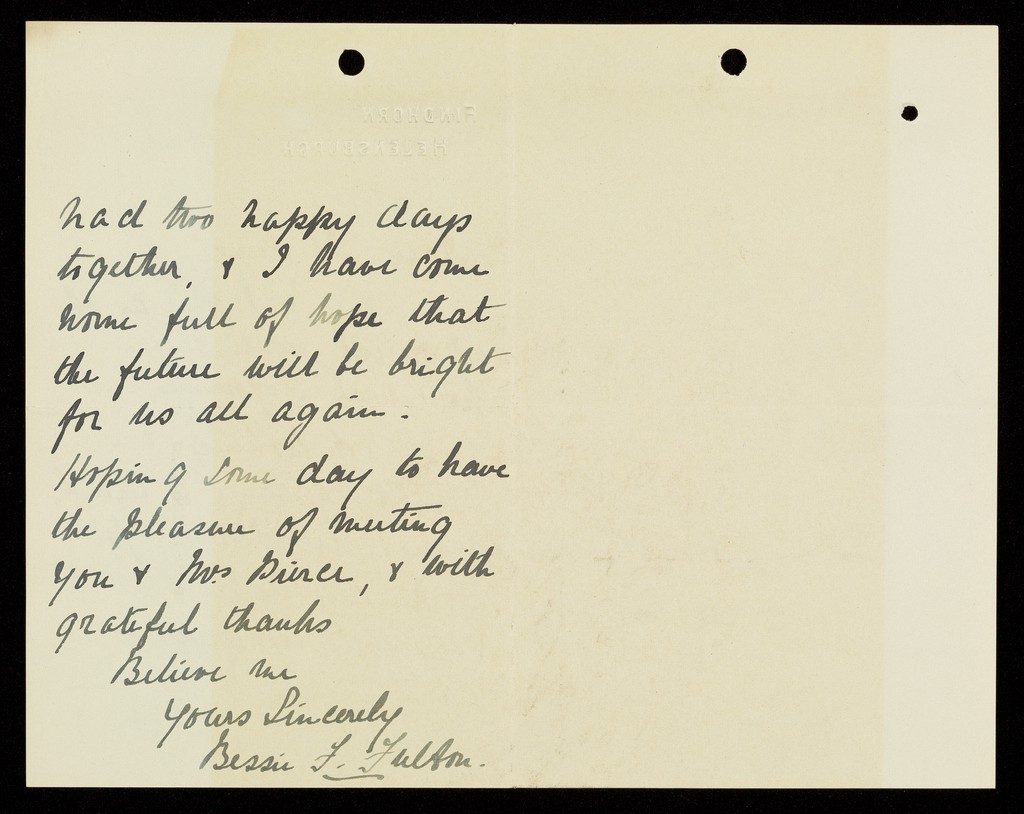 FINDHORN
HELENSBURGH
had two happy days
together, & I have come
home full of hope that
the future will be bright
for us all again.
Hoping some day to have
the pleasure of meeting
you & Mrs Pierce, & with
grateful thanks
Believe me
Yours Sincerely
Bessie F. Fulton.